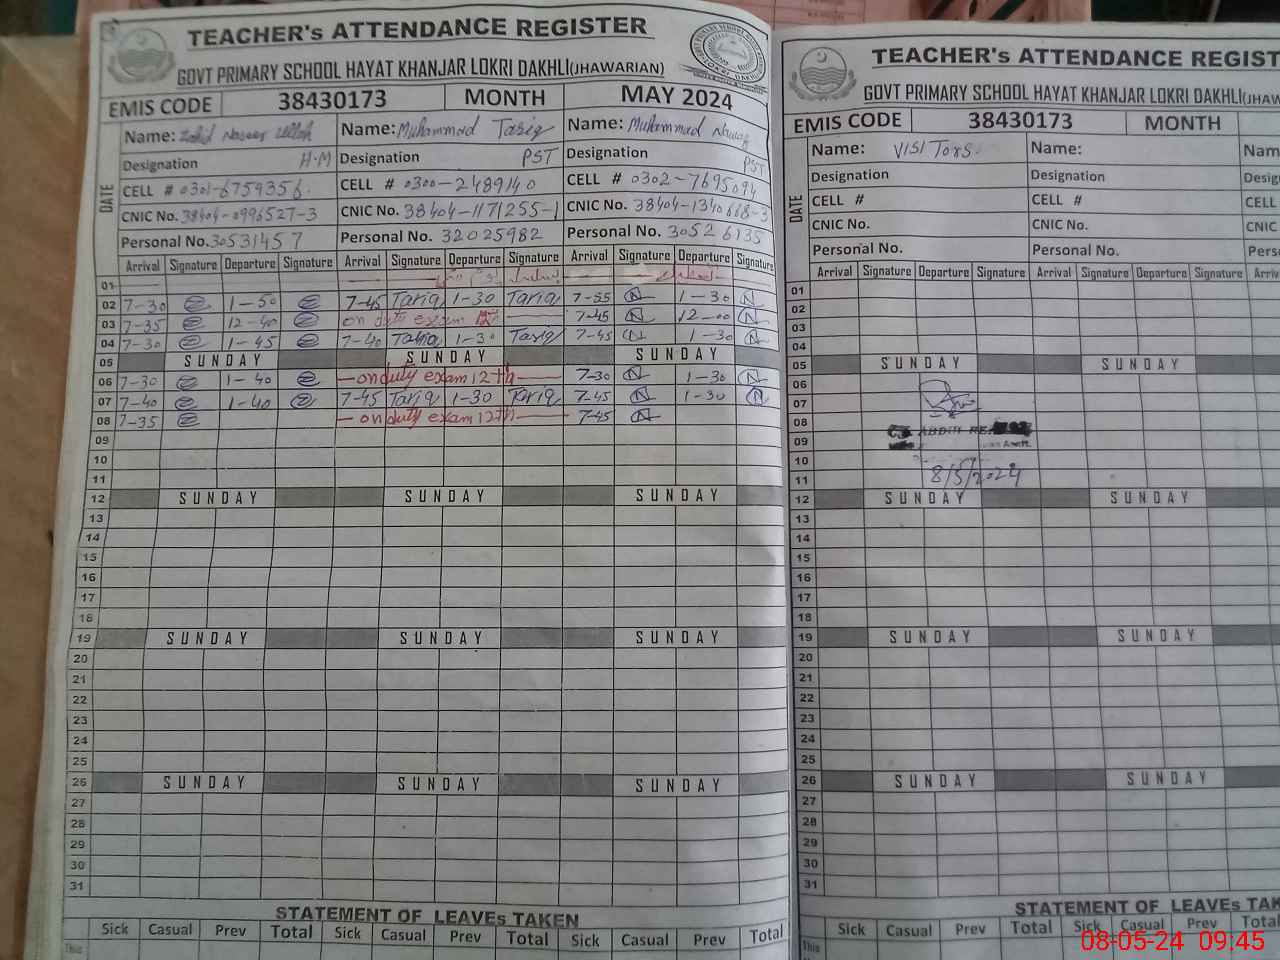 TEACHER's ATTENDANCE REGISTER
GOVT PRIMARY SCHOOL HAYAT KHANJAR LOKRI DAKHLI(JHAWARIAN)
EMIS CODE 38430173 MONTH MAY 2024
DATE
Name: Zahid Naseer Ullah Name: Muhammad Tariq Name: Muhammad Nawaz
Designation H.M Designation PST Designation PST
CELL # 0301-6759356. CELL # 0300-2489140 CELL # 0302-7695094
CNIC No. 38404-0996527-3 CNIC No. 38404-1171255-1 CNIC No. 38404-1340668-3
Personal No. 30531457 Personal No. 32025982 Personal No. 30526135
Arrival Signature Departure Signature Arrival Signature Departure Signature Arrival Signature Departure Signature
01
02 7-30 1-50 7-45 Tariq 1-30 Tariq 7-55 N 1-30 N
03 7-35 12-40 on duty exam 7-45 N 12-00 N
04 7-30 1-45 7-40 Tariq 1-30 Tariq 7-45 N 1-30 N
05 SUNDAY SUNDAY SUNDAY
06 7-30 1-40 on duty exam 12th 7-30 N 1-30 N
07 7-40 1-40 7-45 Tariq 1-30 Tariq 7-45 N 1-30 N
08 7-35 on duty exam 12th 7-45 N
09
10
11
12 SUNDAY SUNDAY SUNDAY
13
14
15
16
17
18
19 SUNDAY SUNDAY SUNDAY
20
21
22
23
24
25
26 SUNDAY SUNDAY SUNDAY
27
28
29
30
31
STATEMENT OF LEAVEs TAKEN
Sick Casual Prev Total Sick Casual Prev Total Sick Casual Prev Total
This
TEACHER's ATTENDANCE REGIST
GOVT PRIMARY SCHOOL HAYAT KHANJAR LOKRI DAKHLI(JHAW
EMIS CODE 38430173 MONTH
DATE
Name: VISITORS. Name: Nam
Designation Designation Desig
CELL # CELL # CELL
CNIC No. CNIC No. CNIC
Personal No. Personal No. Perso
Arrival Signature Departure Signature Arrival Signature Departure Signature Arriva
01
02
03
04
05 SUNDAY SUNDAY
06
07
08
09 ABDUL
10
11 8/5/2024
12 SUNDAY SUNDAY
13
14
15
16
17
18
19 SUNDAY SUNDAY
20
21
22
23
24
25
26 SUNDAY SUNDAY
27
28
29
30
31
STATEMENT OF LEAVEs TA
Sick Casual Prev Total Sick Casual Prev Total
This
08-05-24 09:45